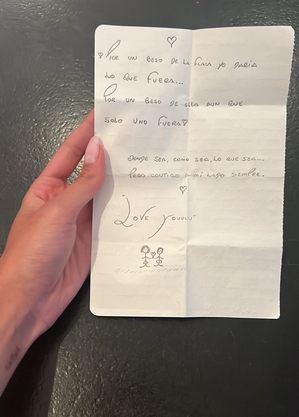 Por un beso de la flaca yo daría
lo que fuera...
Por un beso de ella aun que
solo uno fuera!
Donde sea, como sea, lo que sea...
Pero contigo a mi lado siempre.
Love you